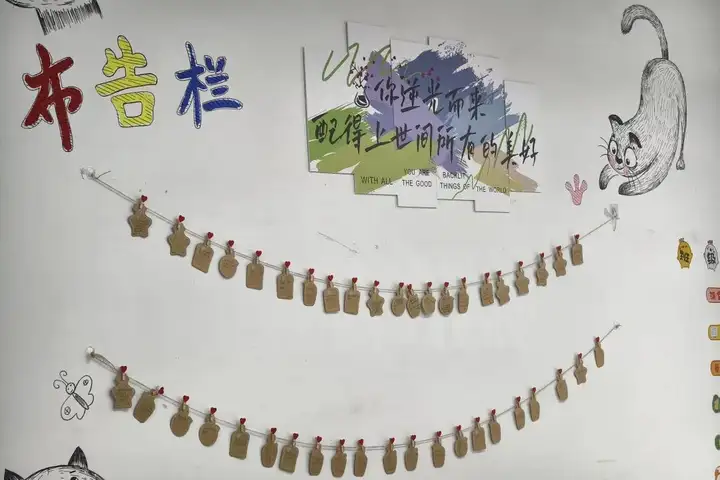 布告栏
你逆光而来
配得上世间所有的美好
WITH ALL YOU ARE THE GOOD BACKLIT THINGS OF THE WORLD
班
级